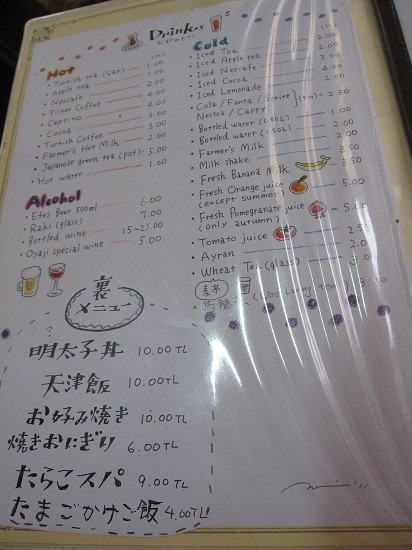 Drinks
Hot
(TL)
• Turkish tea (çay) 1.00
• Apple tea 1.00
• Nescafe 2.00
• Filter Coffee 4.00
• Capcino 3.00
• Cocoa 3.00
• Turkish Coffee 3.00
• Farmer's Hot Milk 2.00
• Japanese green tea (pot) 5.00
• Hot water 1.00
Alcohol
• Efes Beer 500ml 6.00
• Raki (glass) 7.00
• Bottled wine 15~25.00
• Oyaji special wine 5.00
Cold
(TL)
• Iced Tea 2.00
• Iced Apple tea 2.00
• Iced Nescafe 3.00
• Iced Cocoa 3.00
• Iced Lemonade 2.00
• Cola / Fanta / Sprite (tin) 2.50
Nestea / Cappy
• Bottled water (0.50L) 1.00
• Bottled water (1.50L) 2.00
• Farmer's Milk 2.00
• Milk shake 3.50
• Fresh Banana Milk 3.50
• Fresh Orange juice 5.00
(except summer)
• Fresh Pomegranate juice 5.00
(only autumn)
• Tomato juice 2.50
• Ayran 2.00
• Wheat Tea (glass)
麦茶
裏
メニュー
明太子丼 10.00TL
天津飯 10.00TL
お好み焼き 10.00TL
焼きおにぎり 6.00TL
たらこスパ 9.00TL
たまごかけご飯 4.00TL